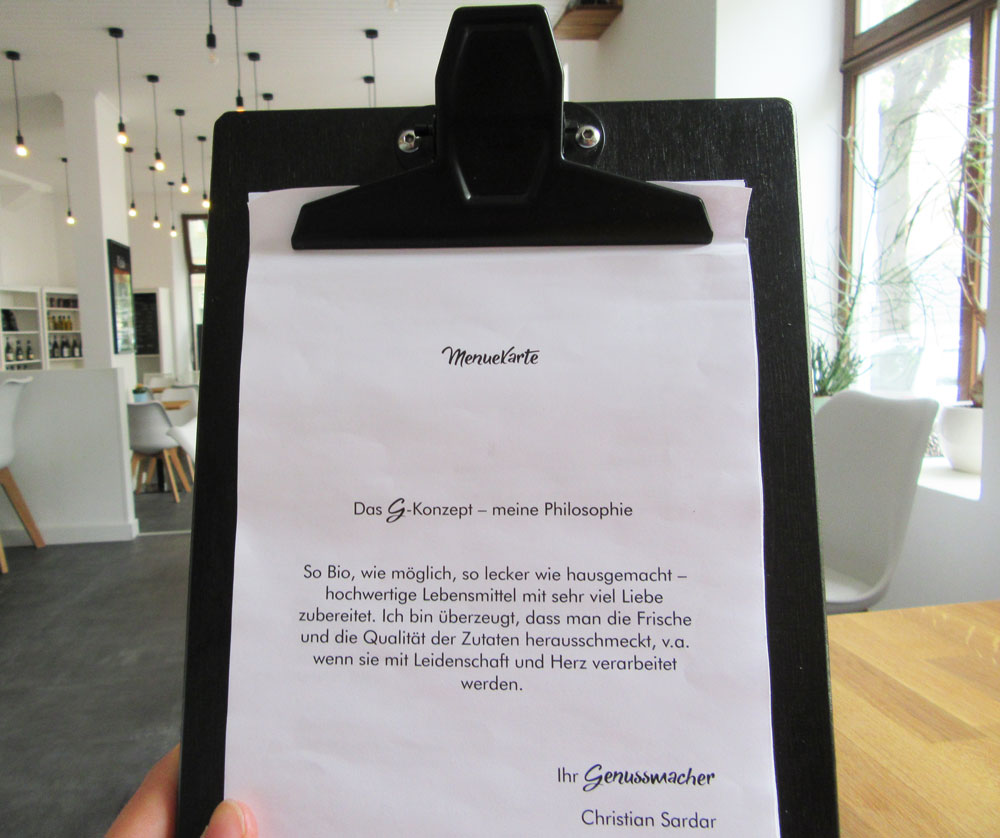 Menuekarte
Das G-Konzept – meine Philosophie
So Bio, wie möglich, so lecker wie hausgemacht –
hochwertige Lebensmittel mit sehr viel Liebe
zubereitet. Ich bin überzeugt, dass man die Frische
und die Qualität der Zutaten herausschmeckt, v.a.
wenn sie mit Leidenschaft und Herz verarbeitet
werden.
Ihr Genussmacher
Christian Sardar